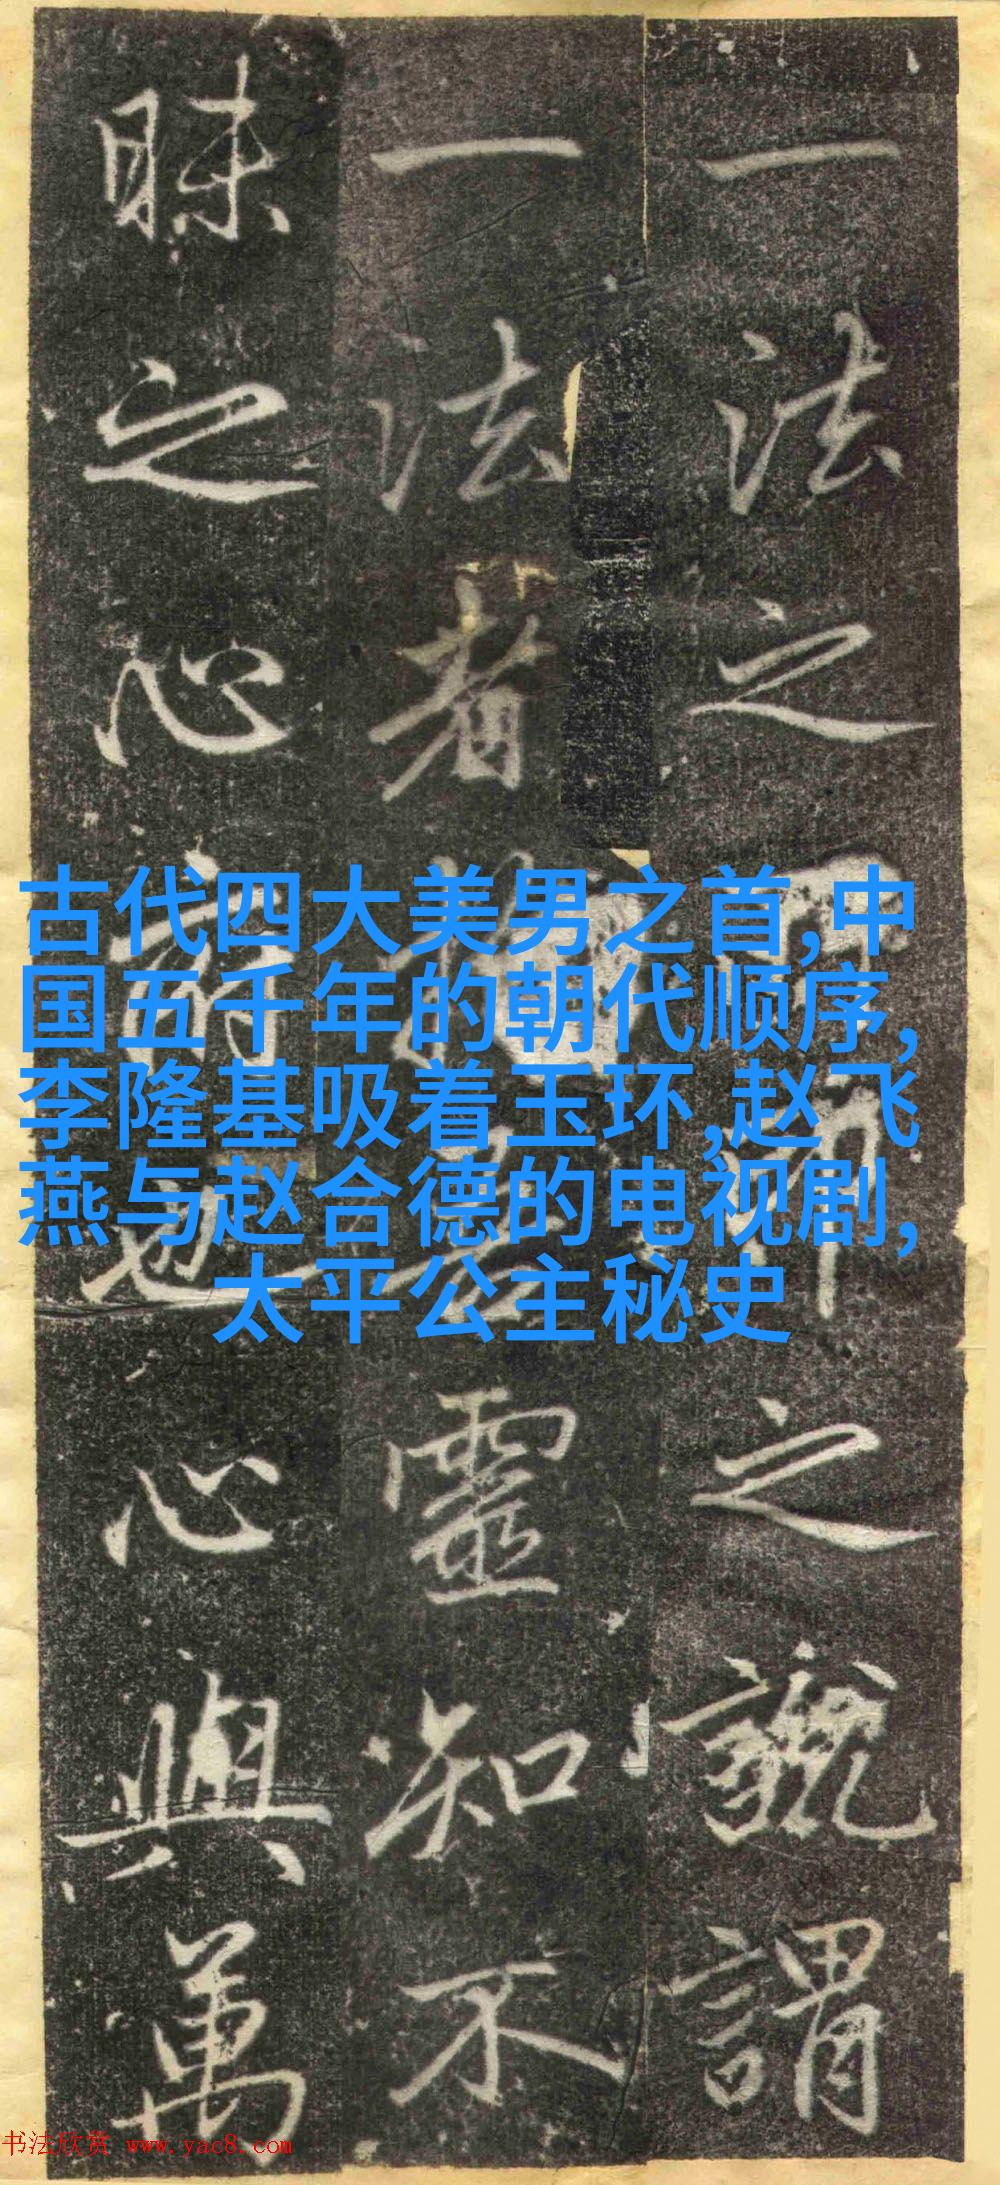 一法之可之說謂
一法者靈知不
昧之心是也心與萬
古代四大美男之首,中
国五千年的朝代顺序,
李隆基吸着玉环,赵飞
燕与赵合德的电视剧,
太平公主秘史
书法欣赏 www.yac8.com